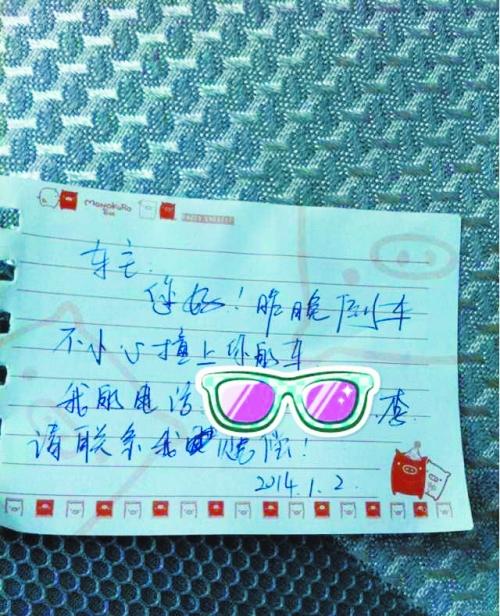 MONOKURO
Boo
车主:
你好!昨晚倒车
不小心撞上你的车
我的电话 李
请联系我 赔偿!
2014.1.2.